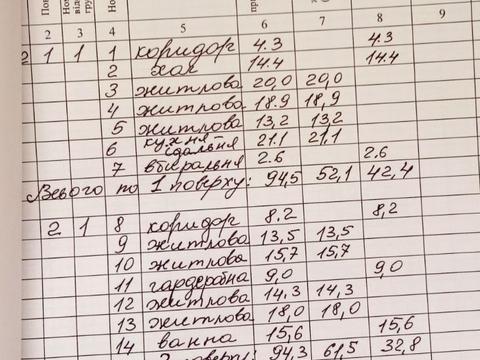 2 3 4 5 6 8 9
1 1 1 коридор 4.3 4.3
2 хол 14.4 14.4
3 житлова 20,0 20,0
4 житлова 18.9 18,9
5 житлова 13,2 13,2
6 кухня їдальня 21.1 21,1
7 вбиральня 2.6 2.6
Всього по 1 поверху: 94,5 52,1 42,4
2 1 8 коридор 8.2 8,2
9 житлова 13,5 13,5
10 житлова 15,7 15,7
11 гардеробна 9,0 9,0
12 житлова 14,3 14,3
13 житлова 18,0 18,0
14 ванна 15,6 15,6
поверху: 94,3 61,5 32,8